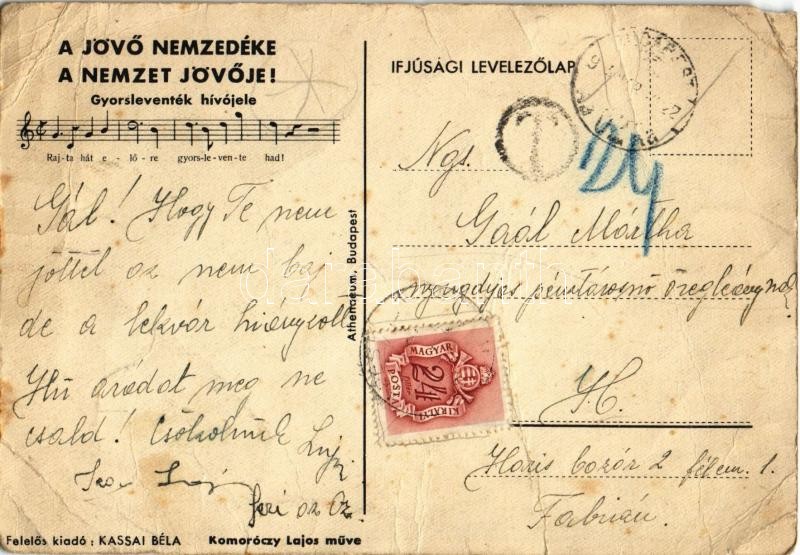 A JÖVŐ NEMZEDÉKE
A NEMZET JÖVŐJE!
Gyorsleventék hívójele
Raj-ta hát e-lő-re gyors-le-ven-te had!
Gál! Hogy Te nem
jöttél az nem baj
de a lekvár hiányzott
Hű uradat meg ne
csald! Csókolunk
Felelős kiadó: KASSAI BÉLA
Komoróczy Lajos műve
Athenaeum, Budapest
IFJÚSÁGI LEVELEZŐLAP
T
24
Ngs.
Gaál Mártha
nyugdíjas pénztárosnő
H.
Haris bazár 2 félem. 1.
Fabrián.
MAGYAR
24
KIRÁLYI
POSTA